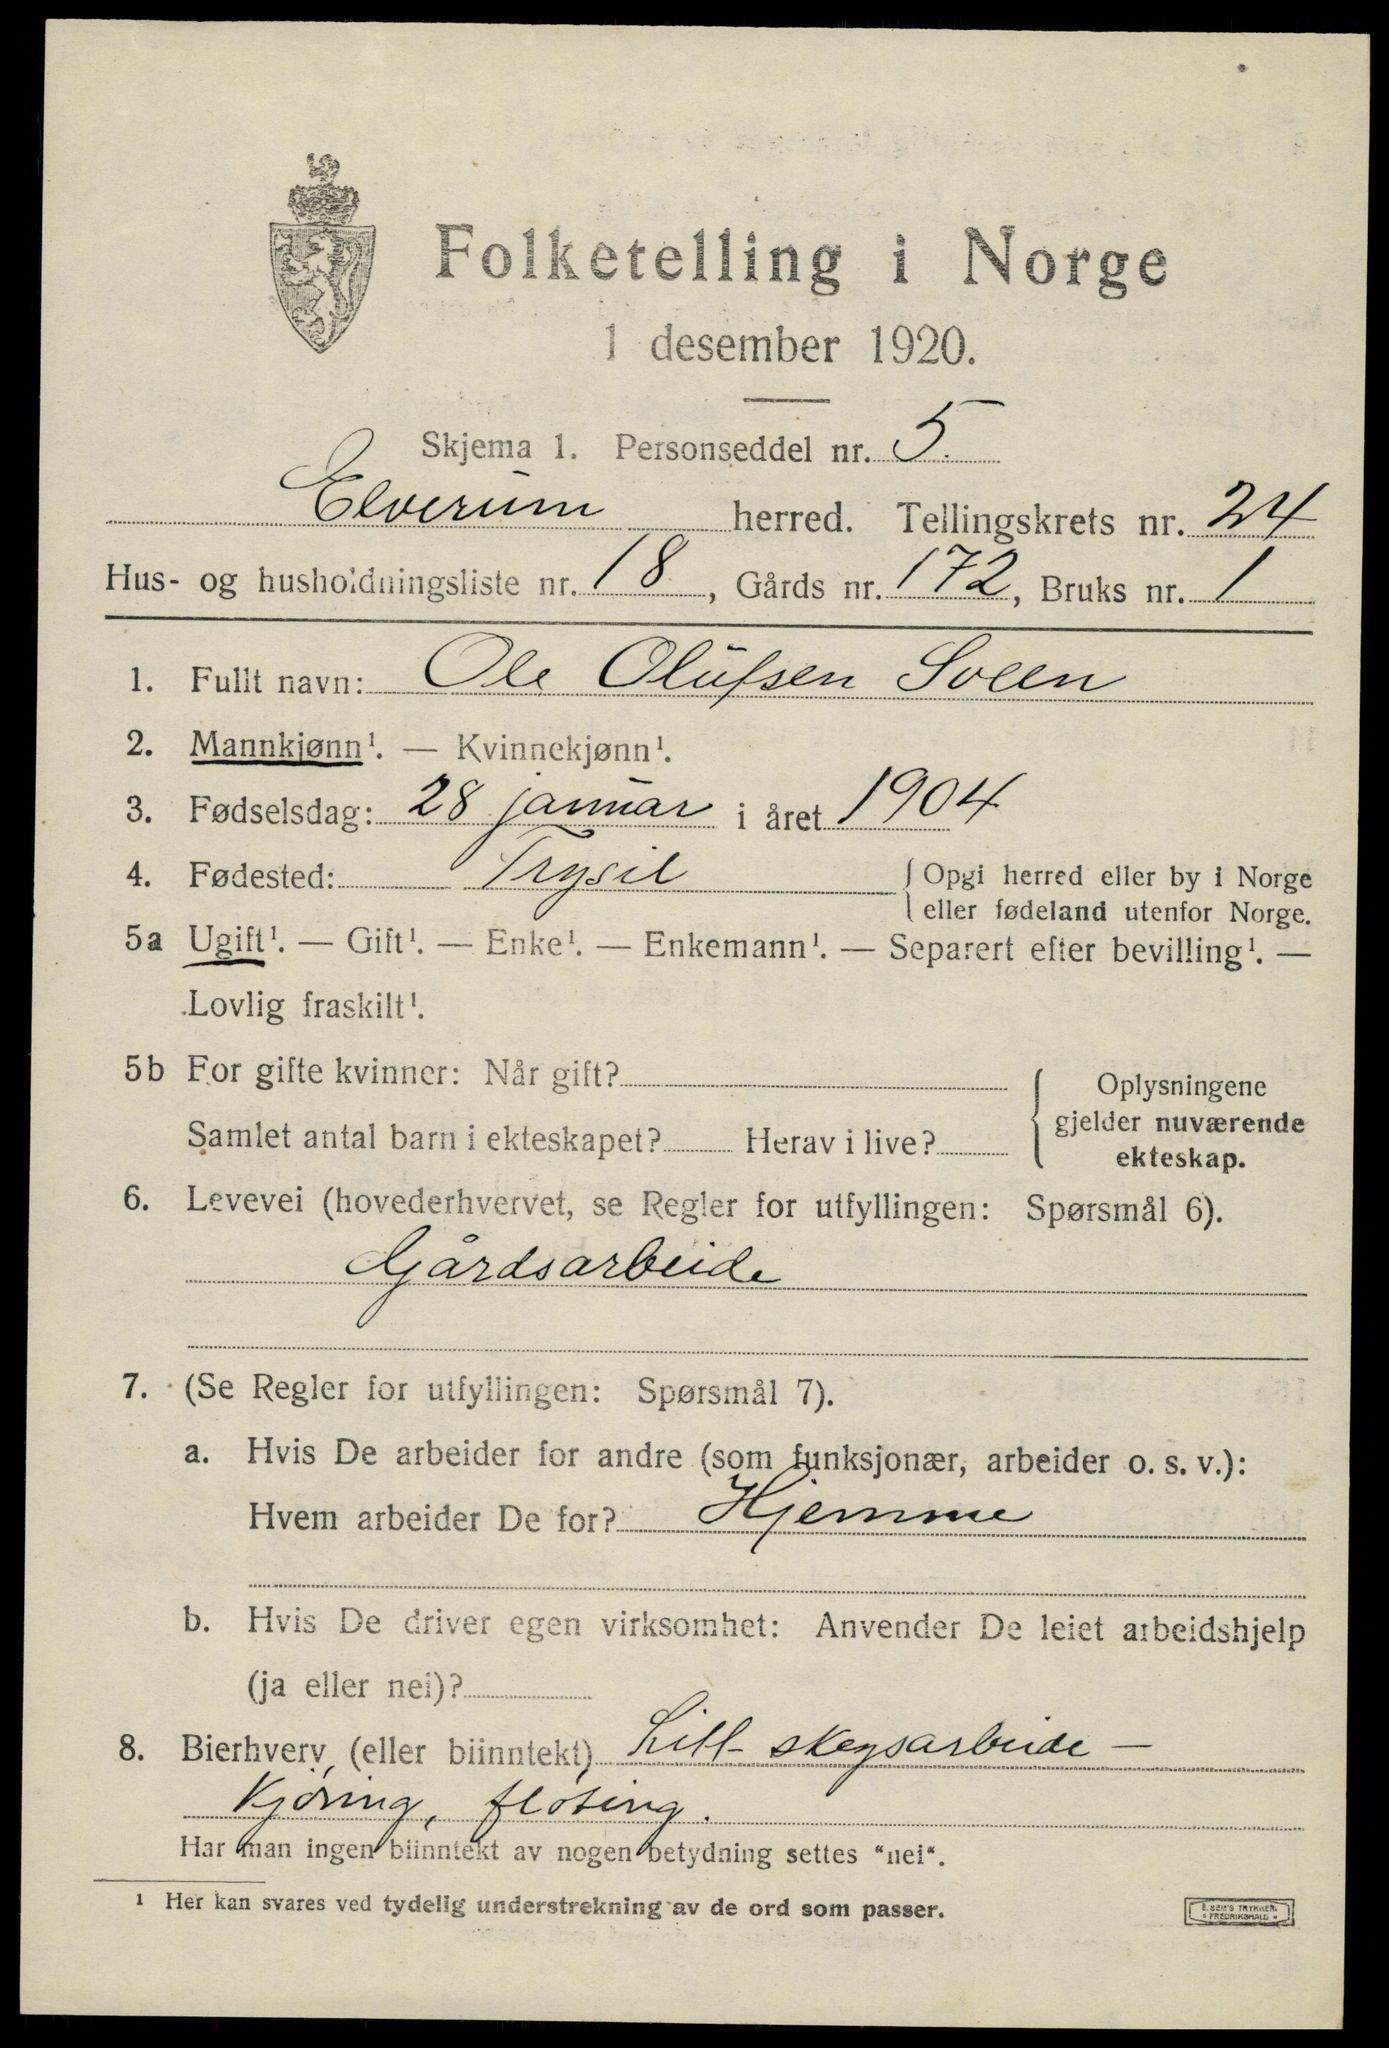 Folketelling i Norge
1 desember 1920.
Skjema 1. Personseddel nr. 5.
Elverum herred. Tellingskrets nr. 24
Hus- og husholdningsliste nr. 18, Gårds nr. 172, Bruks nr. 1
1. Fullt navn: Ole Olufsen Sveen
2. Mannkjønn¹. — Kvinnekjønn¹.
3. Fødselsdag: 28 januar i året 1904
4. Fødested: Trysil { Opgi herred eller by i Norge
eller fødeland utenfor Norge.
5a Ugift¹. — Gift¹. — Enke¹. — Enkemann¹. — Separert efter bevilling¹. —
Lovlig fraskilt¹.
5b For gifte kvinner: Når gift?
Samlet antal barn i ekteskapet? Herav i live?
{ Oplysningene
gjelder nuværende
ekteskap.
6. Levevei (hovederhvervet, se Regler for utfyllingen: Spørsmål 6).
Gårdsarbeide
7. (Se Regler for utfyllingen: Spørsmål 7).
a. Hvis De arbeider for andre (som funksjonær, arbeider o. s. v.):
Hvem arbeider De for? Hjemme
b. Hvis De driver egen virksomhet: Anvender De leiet arbeidshjelp
(ja eller nei)?
8. Bierhverv (eller biinntekt) Litt skogsarbeide —
kjöring, flöting.
Har man ingen biinntekt av nogen betydning settes "nei".
¹ Her kan svares ved tydelig understrekning av de ord som passer.
E. SEM'S TRYKKERI
FREDRIKSHALD